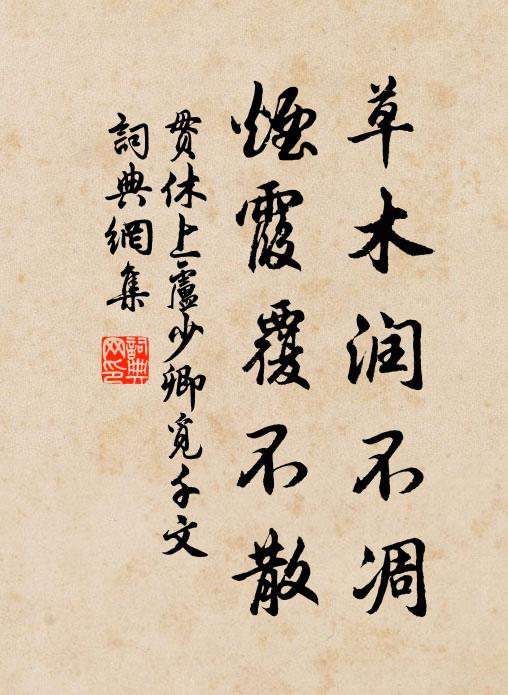 草木润不凋
煙霞覆不散
贯休上盧少卿覓千文
詞典網集
詞典網印